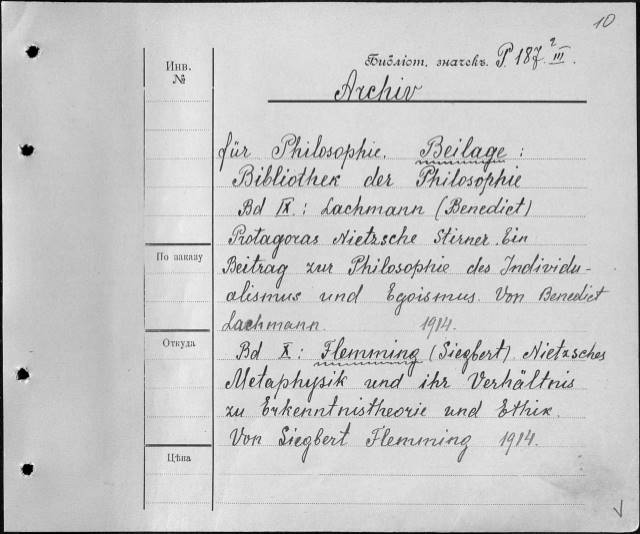 10
Инв. №
Библіот. значекъ. P. 187 2/III.
Archiv
für Philosophie. Beilage:
Bibliothek der Philosophie
Bd IX: Lachmann (Benedict)
Protagoras Nietzsche Stirner. Ein
По заказу
Beitrag zur Philosophie des Individu-
alismus und Egoismus. Von Benedict
Lachmann. 1914.
Откуда
Bd X: Flemming (Siegbert). Nietzsches
Metaphysik und ihr Verhältnis
zu Erkenntnistheorie und Ethik.
Von Siegbert Flemming 1914.
Цѣна